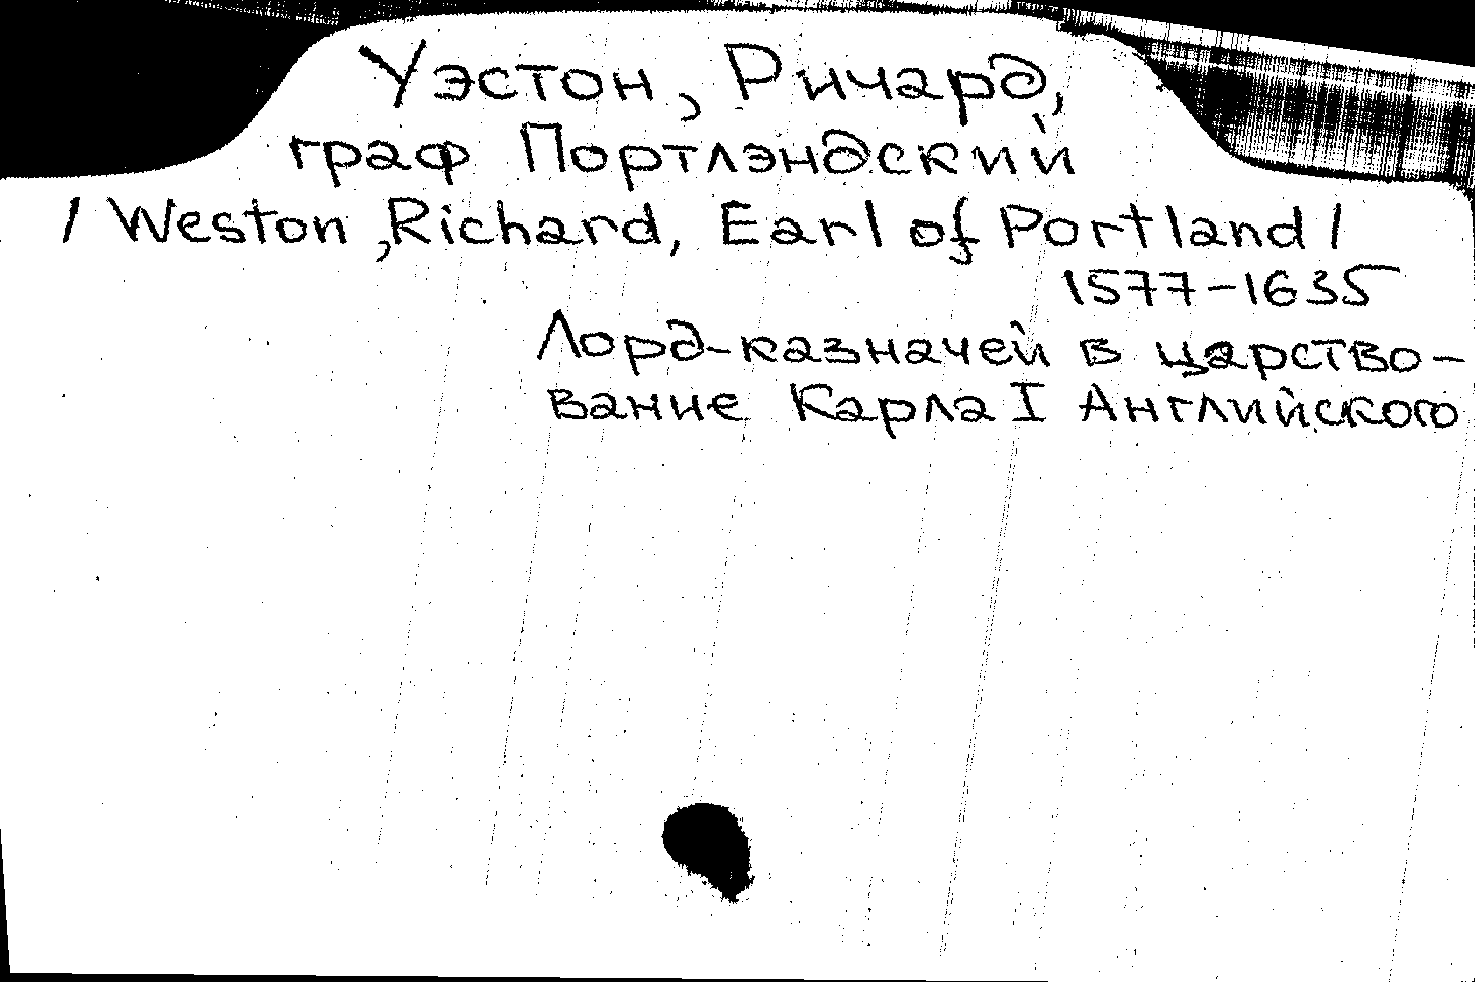 Уэстон, Ричард,
граф Портлэндский
/ Weston, Richard, Earl of Portland /
1577-1635
Лорд-казначей в царство-
вание Карла I Английского